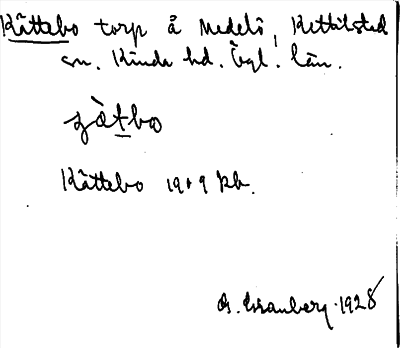 Kättebo torp å Medelö, Kettilstad
sn. Kinda hd. Ögl. län.
Kättebo 1919 kb.
G. Granberg. 1928